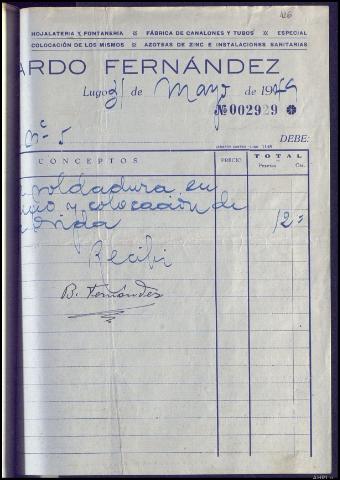 126
HOJALATERIA Y FONTANERIA ※ FÁBRICA DE CANALONES Y TUBOS ※ ESPECIAL
COLOCACIÓN DE LOS MISMOS ※ AZOTEAS DE ZINC E INSTALACIONES SANITARIAS
ARDO FERNÁNDEZ
Lugo 31 de Mayo de 1949
№ 002929
nº 5
DEBE:
CONCEPTOS PRECIO TOTAL
Pesetas Cts.
soldadura en
y colocación de
12
Recibí
B. Fernández